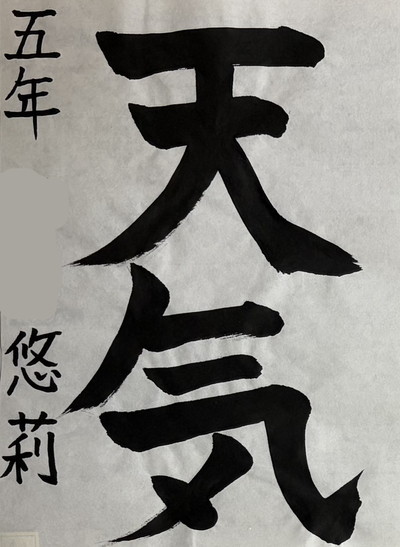 天気
五年
悠莉